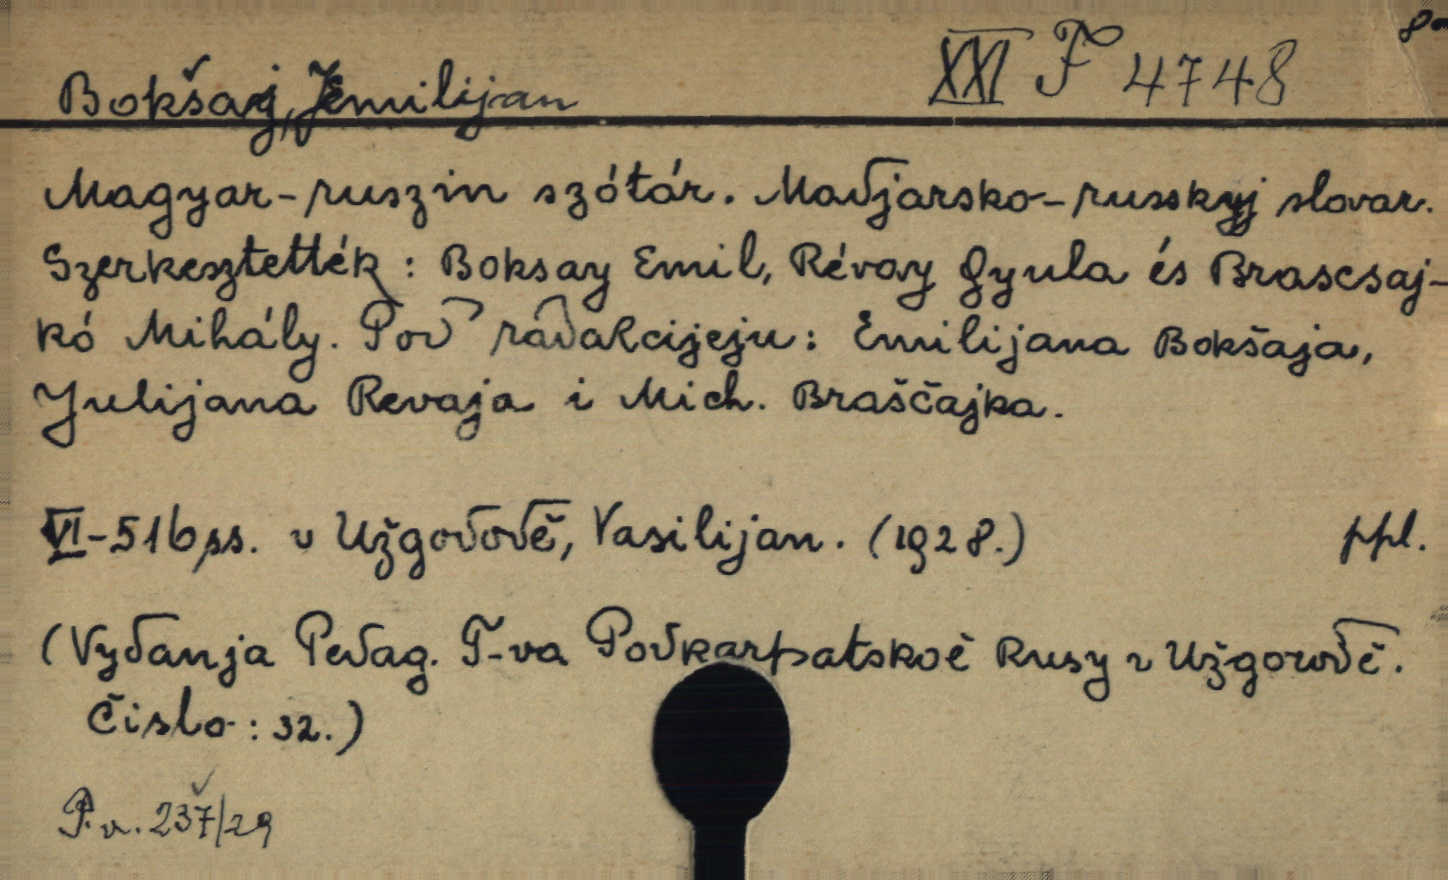 XXI F 4748
Bokšaj, Jemilijan
Magyar-ruszin szótár. Madjarsko-russkyj slovar.
Szerkesztették: Boksay Emil, Révay Gyula és Brascsaj-
kó Mihály. Pod rádakcijeju: Emilijana Bokšaja,
Julijana Revaja i Mich. Braščajka.
VI-516 ss. v Užgorodě, Vasilijan. (1928.) ppl.
(Vydanja Pedag. T-va Podkarpatskoě Rusy v Užgorodě.
Čislo: 32.)
P. v. 237/29